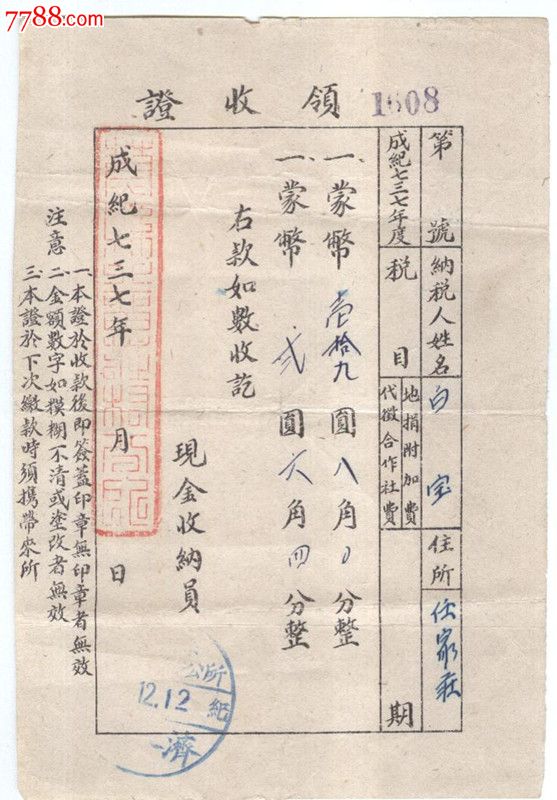 7788.com
領收證
1608
第 號 納稅人姓名 白 宝 住所 任家莊
成紀七三七年度 稅 目 地捐附加費 代徵合作社費 期
一、蒙幣 壹拾九 圓 八 角 0 分整
一、蒙幣 弐 圓 六 角 四 分整
右款如數收訖
現金收納員
成紀七三七年 月 日
注意
一、本證於收款後即簽蓋印章無印章者無效
二、金額數字如模糊不清或塗改者無效
三、本證於下次繳款時須攜帶來所
所
12.12
紀
濟